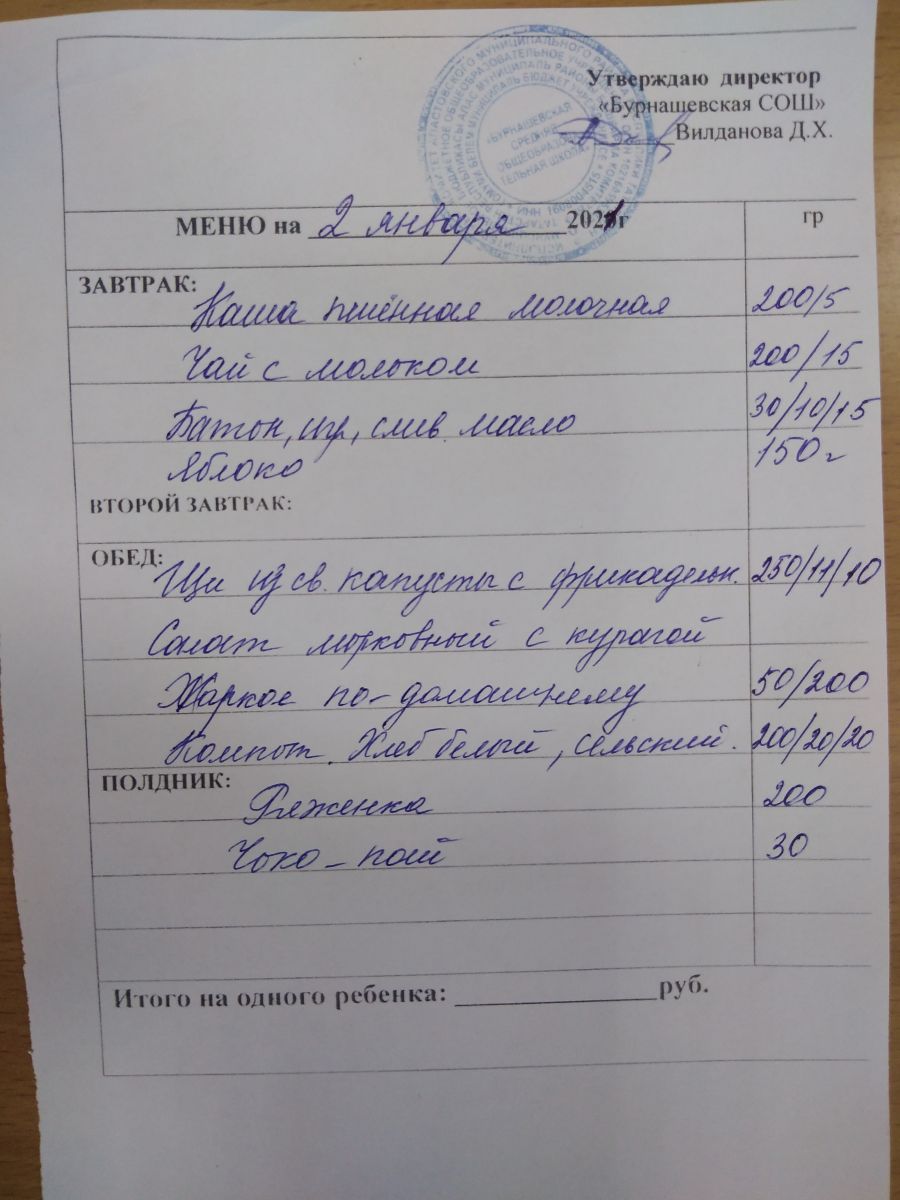 Утверждаю директор
«Бурнашевская СОШ»
Вилданова Д.Х.
«БУРНАШЕВСКАЯ
СРЕДНЯЯ
ОБЩЕОБРАЗОВА-
ТЕЛЬНАЯ ШКОЛА»
МЕНЮ на 2 января 2021г
гр
ЗАВТРАК:
Каша пшённая молочная 200/5
Чай с молоком 200/15
Батон, сыр, слив. масло 30/10/15
Яблоко 150г
ВТОРОЙ ЗАВТРАК:
ОБЕД:
Щи из св. капусты с фрикадельк. 250/11/10
Салат морковный с курагой
Жаркое по-домашнему 50/200
Компот. Хлеб белый, сельский. 200/20/20
ПОЛДНИК:
Ряженка 200
Чоко-пай 30
Итого на одного ребенка: ________________руб.